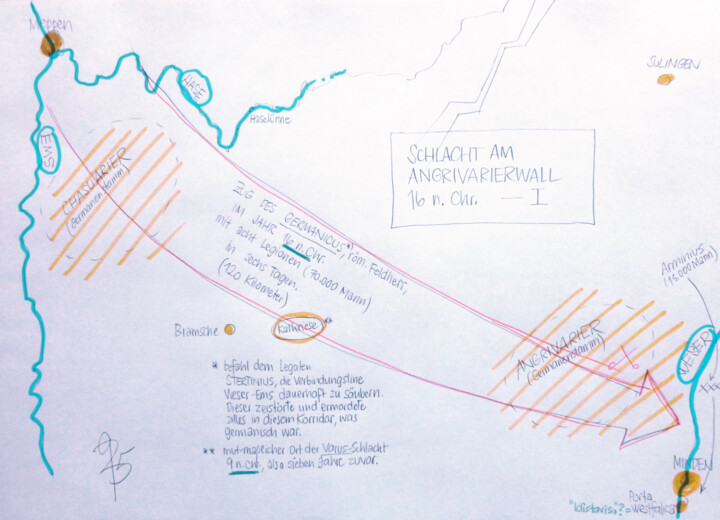 Meppen
HASE
Haselünne
SULINGEN
EMS
SCHLACHT AM
ANGRIVARIERWALL
16 n. Chr. — I
CHASUARIER
(Germanenstamm)
ZUG DES GERMANICUS*, röm. Feldherr,
IM JAHR 16 n. Chr.
mit acht Legionen (70.000 Mann)
in sechs Tagen.
(120 Kilometer)
Arminius
Bramsche
Kalkriese **
ANGRIVARIER
(Germanenstamm)
WESER
* befahl dem Legaten
STERTINIUS, die Verbindungslinie
Weser-Ems dauerhaft zu säubern.
Dieser zerstörte und ermordete
alles in diesem Korridor, was
germanisch war.
** mutmasslicher Ort der Varus-Schlacht
9 n. Chr., also sieben Jahre zuvor.
MINDEN
Porta
"Idistaviso"? = Westfalica